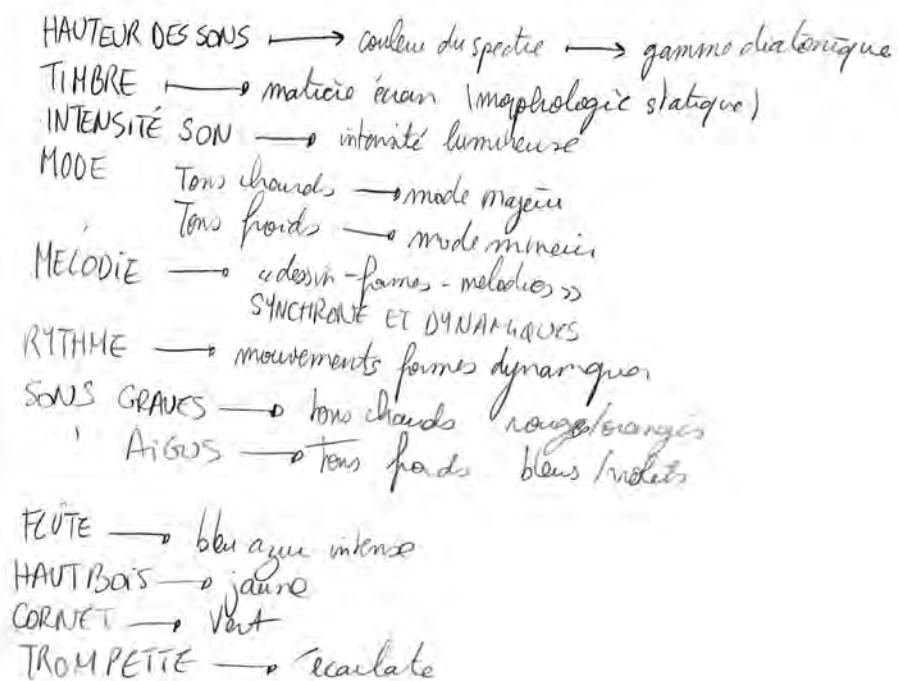 HAUTEUR DES SONS → couleur du spectre → gamme diatonique
TIMBRE → matière écran (morphologie statique)
INTENSITÉ SON → intensité lumineuse
MODE
Tons chauds → mode majeur
Tons froids → mode mineur
MELODIE → «dessin-formes-melodies»
SYNCHRONE ET DYNAMIQUES
RYTHME → mouvements formes dynamiques
SONS GRAVES → tons chauds rouges/orangés
AiGUS → Tons froids bleus/violets
FLÛTE → bleu azur intense
HAUTBOiS → jaune
CORNET → Vert
TROMPETTE → écarlate